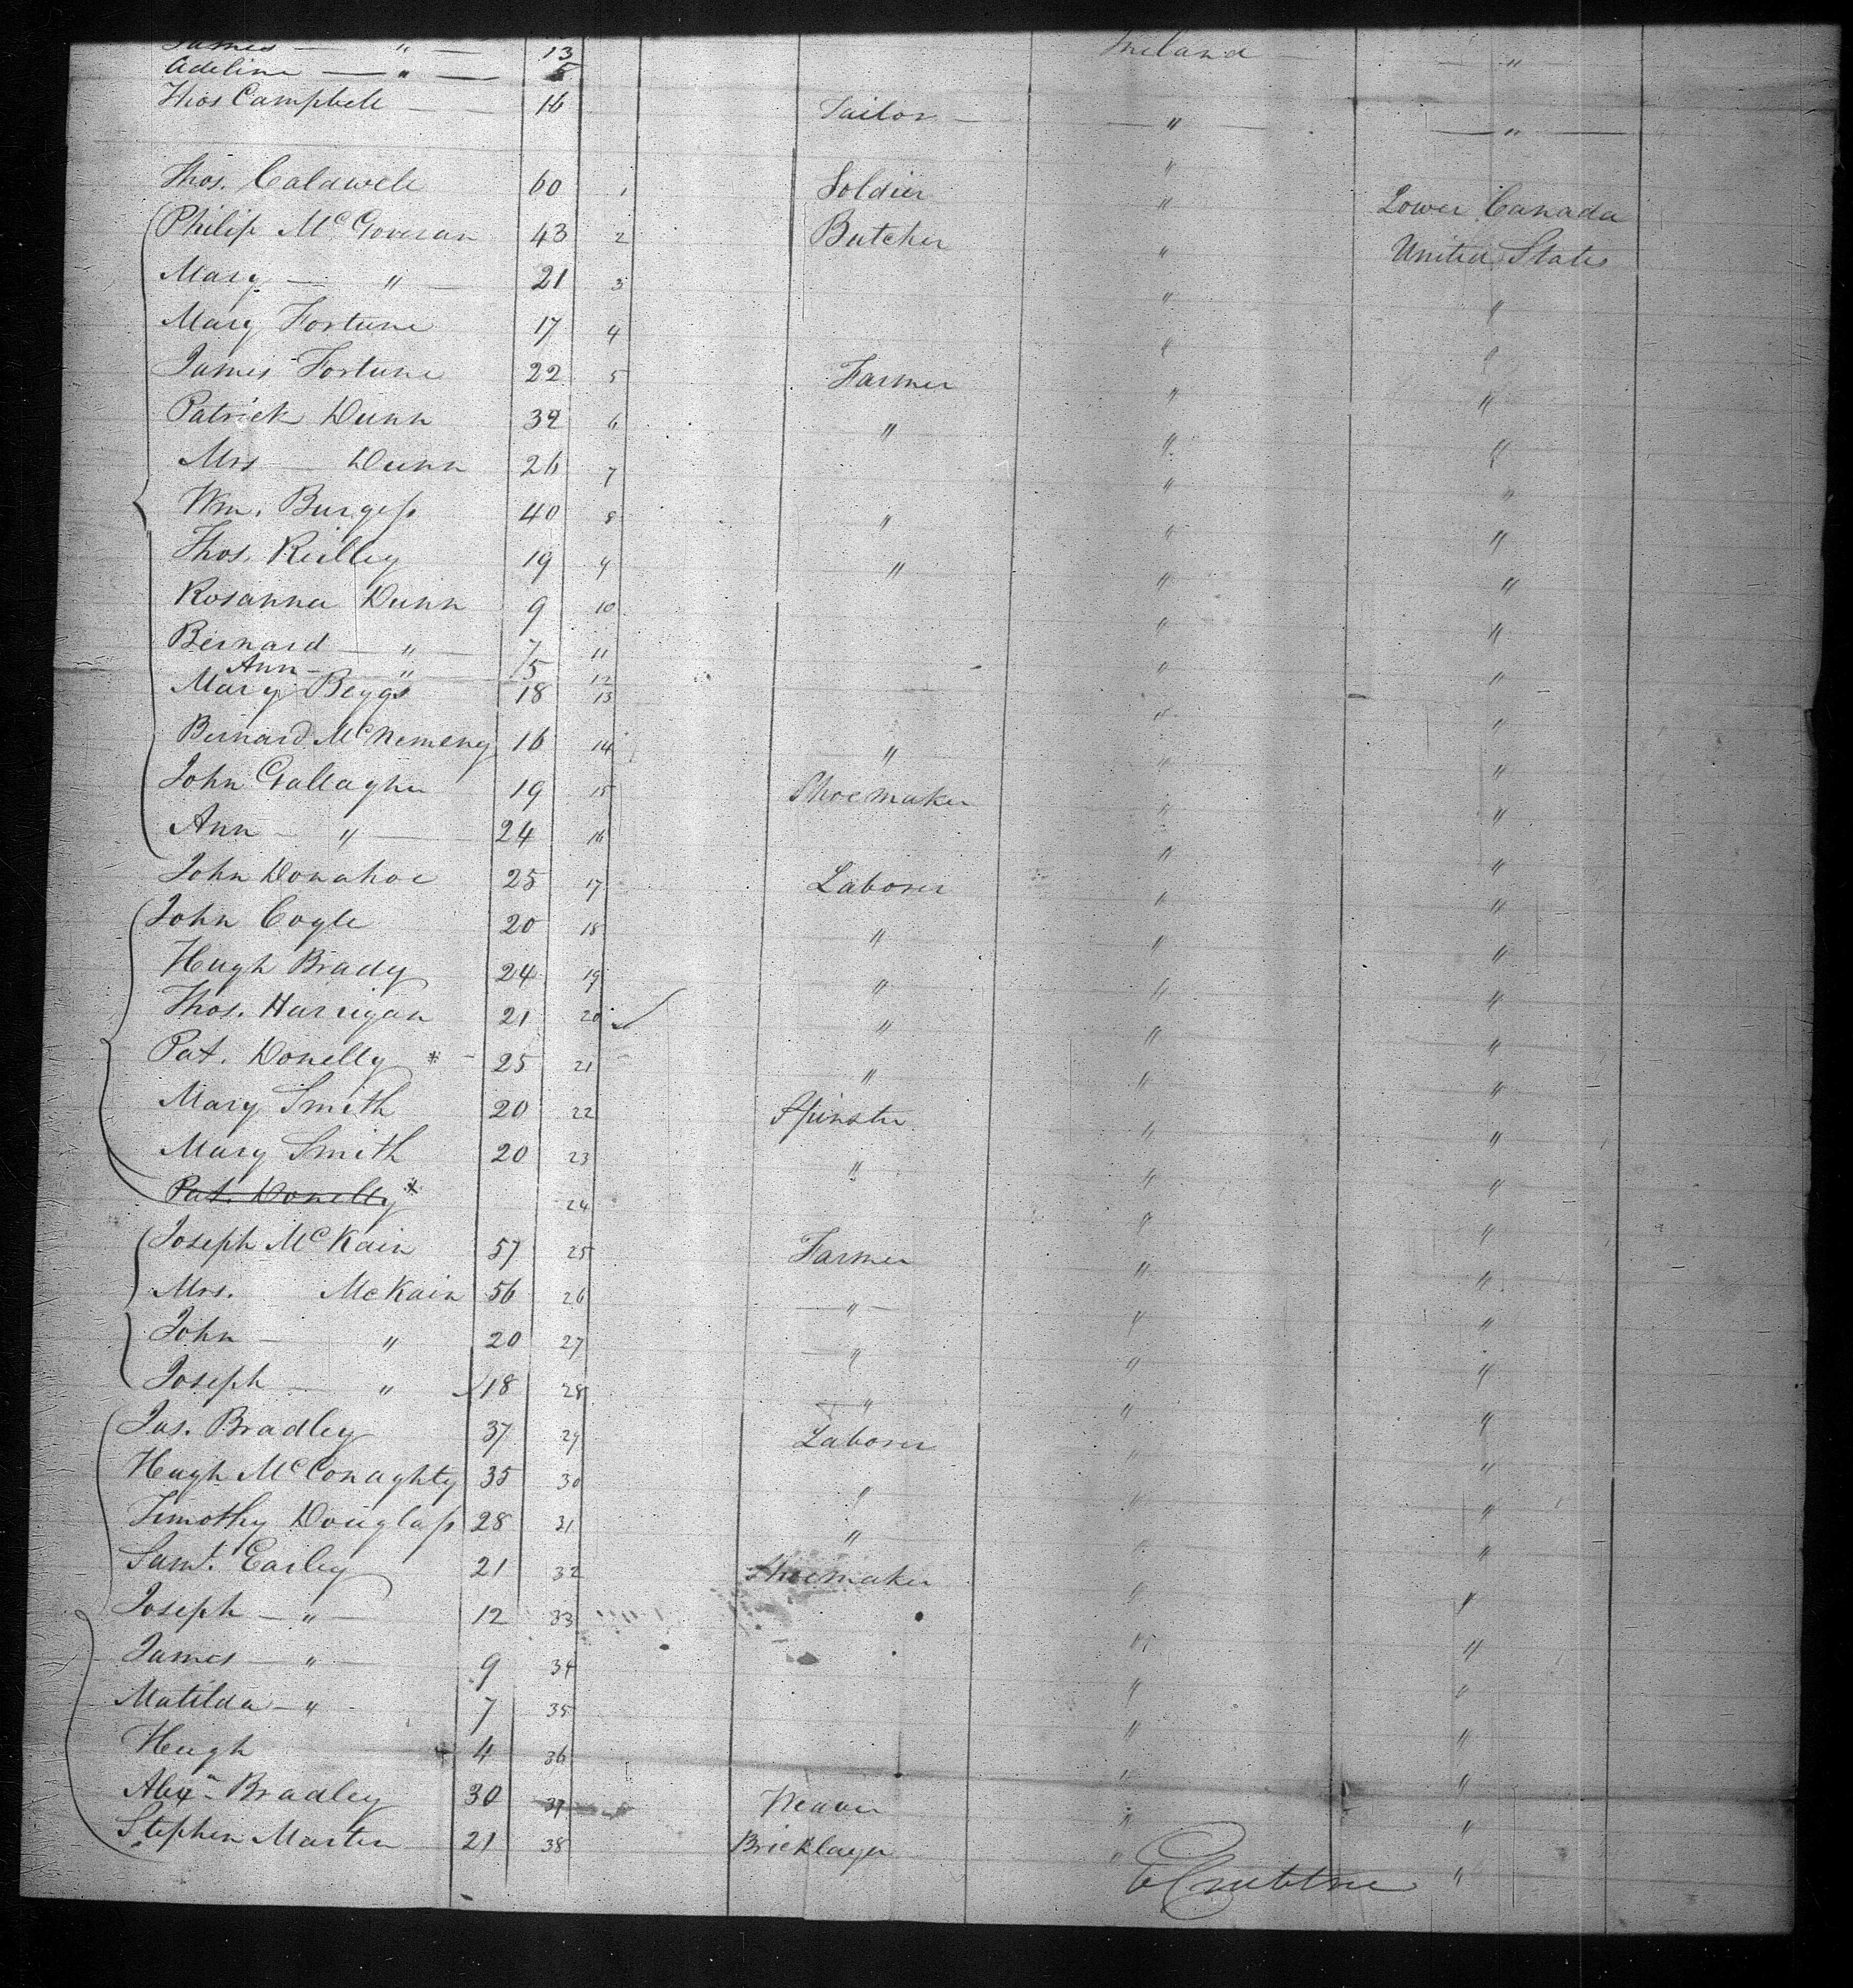 James — " — 13 Ireland — " —
Adeline — " — 5
Thos Campbell — 16 Tailor — — " — — " —
Thos. Caldwell 60 1 Soldier " Lower Canada
Philip McGoveran 43 2 Butcher " United States
Mary — " — 21 3 " "
Mary Fortune 17 4 " "
James Fortune 22 5 Farmer " "
Patrick Dunn 32 6 " " "
Mrs — Dunn 26 7 " "
Wm. Burgess 40 8 " " "
Thos. Reilley 19 9 " " "
Rosanna Dunn 9 10 " "
Bernard — " — 7 11 " "
Ann — " 5 12
Mary Beggs 18 13 " "
Bernard McNemeny 16 14 " " "
John Gallagher 19 15 Shoemaker " "
Ann — " — 24 16 " "
John Donahoe 25 17 Laborer " "
John Coyle 20 18 " " "
Hugh Brady 24 19 " " "
Thos. Harrigan 21 20 ✓ " " "
Pat. Donelly * — 25 21 " " "
Mary Smith 20 22 Spinster " "
Mary Smith 20 23 " " "
Pat. Donelly * 24 " "
Joseph McKain 57 25 Farmer " "
Mrs. McKain 56 26 — " — " "
John — " 20 27 — " " "
Joseph — " 18 28 — " " "
Jas. Bradley 37 29 Laborer " "
Hugh McConaghty 35 30 " " "
Timothy Douglass 28 31 " " "
Saml. Earley 21 32 Shoemaker " "
Joseph — " — 12 33 " "
James — " — 9 34 " "
Matilda — " 7 35 " "
Hugh 4 36 " "
Alexr Bradley 30 37 Weaver " "
Stephen Marten 21 38 Bricklayer " "